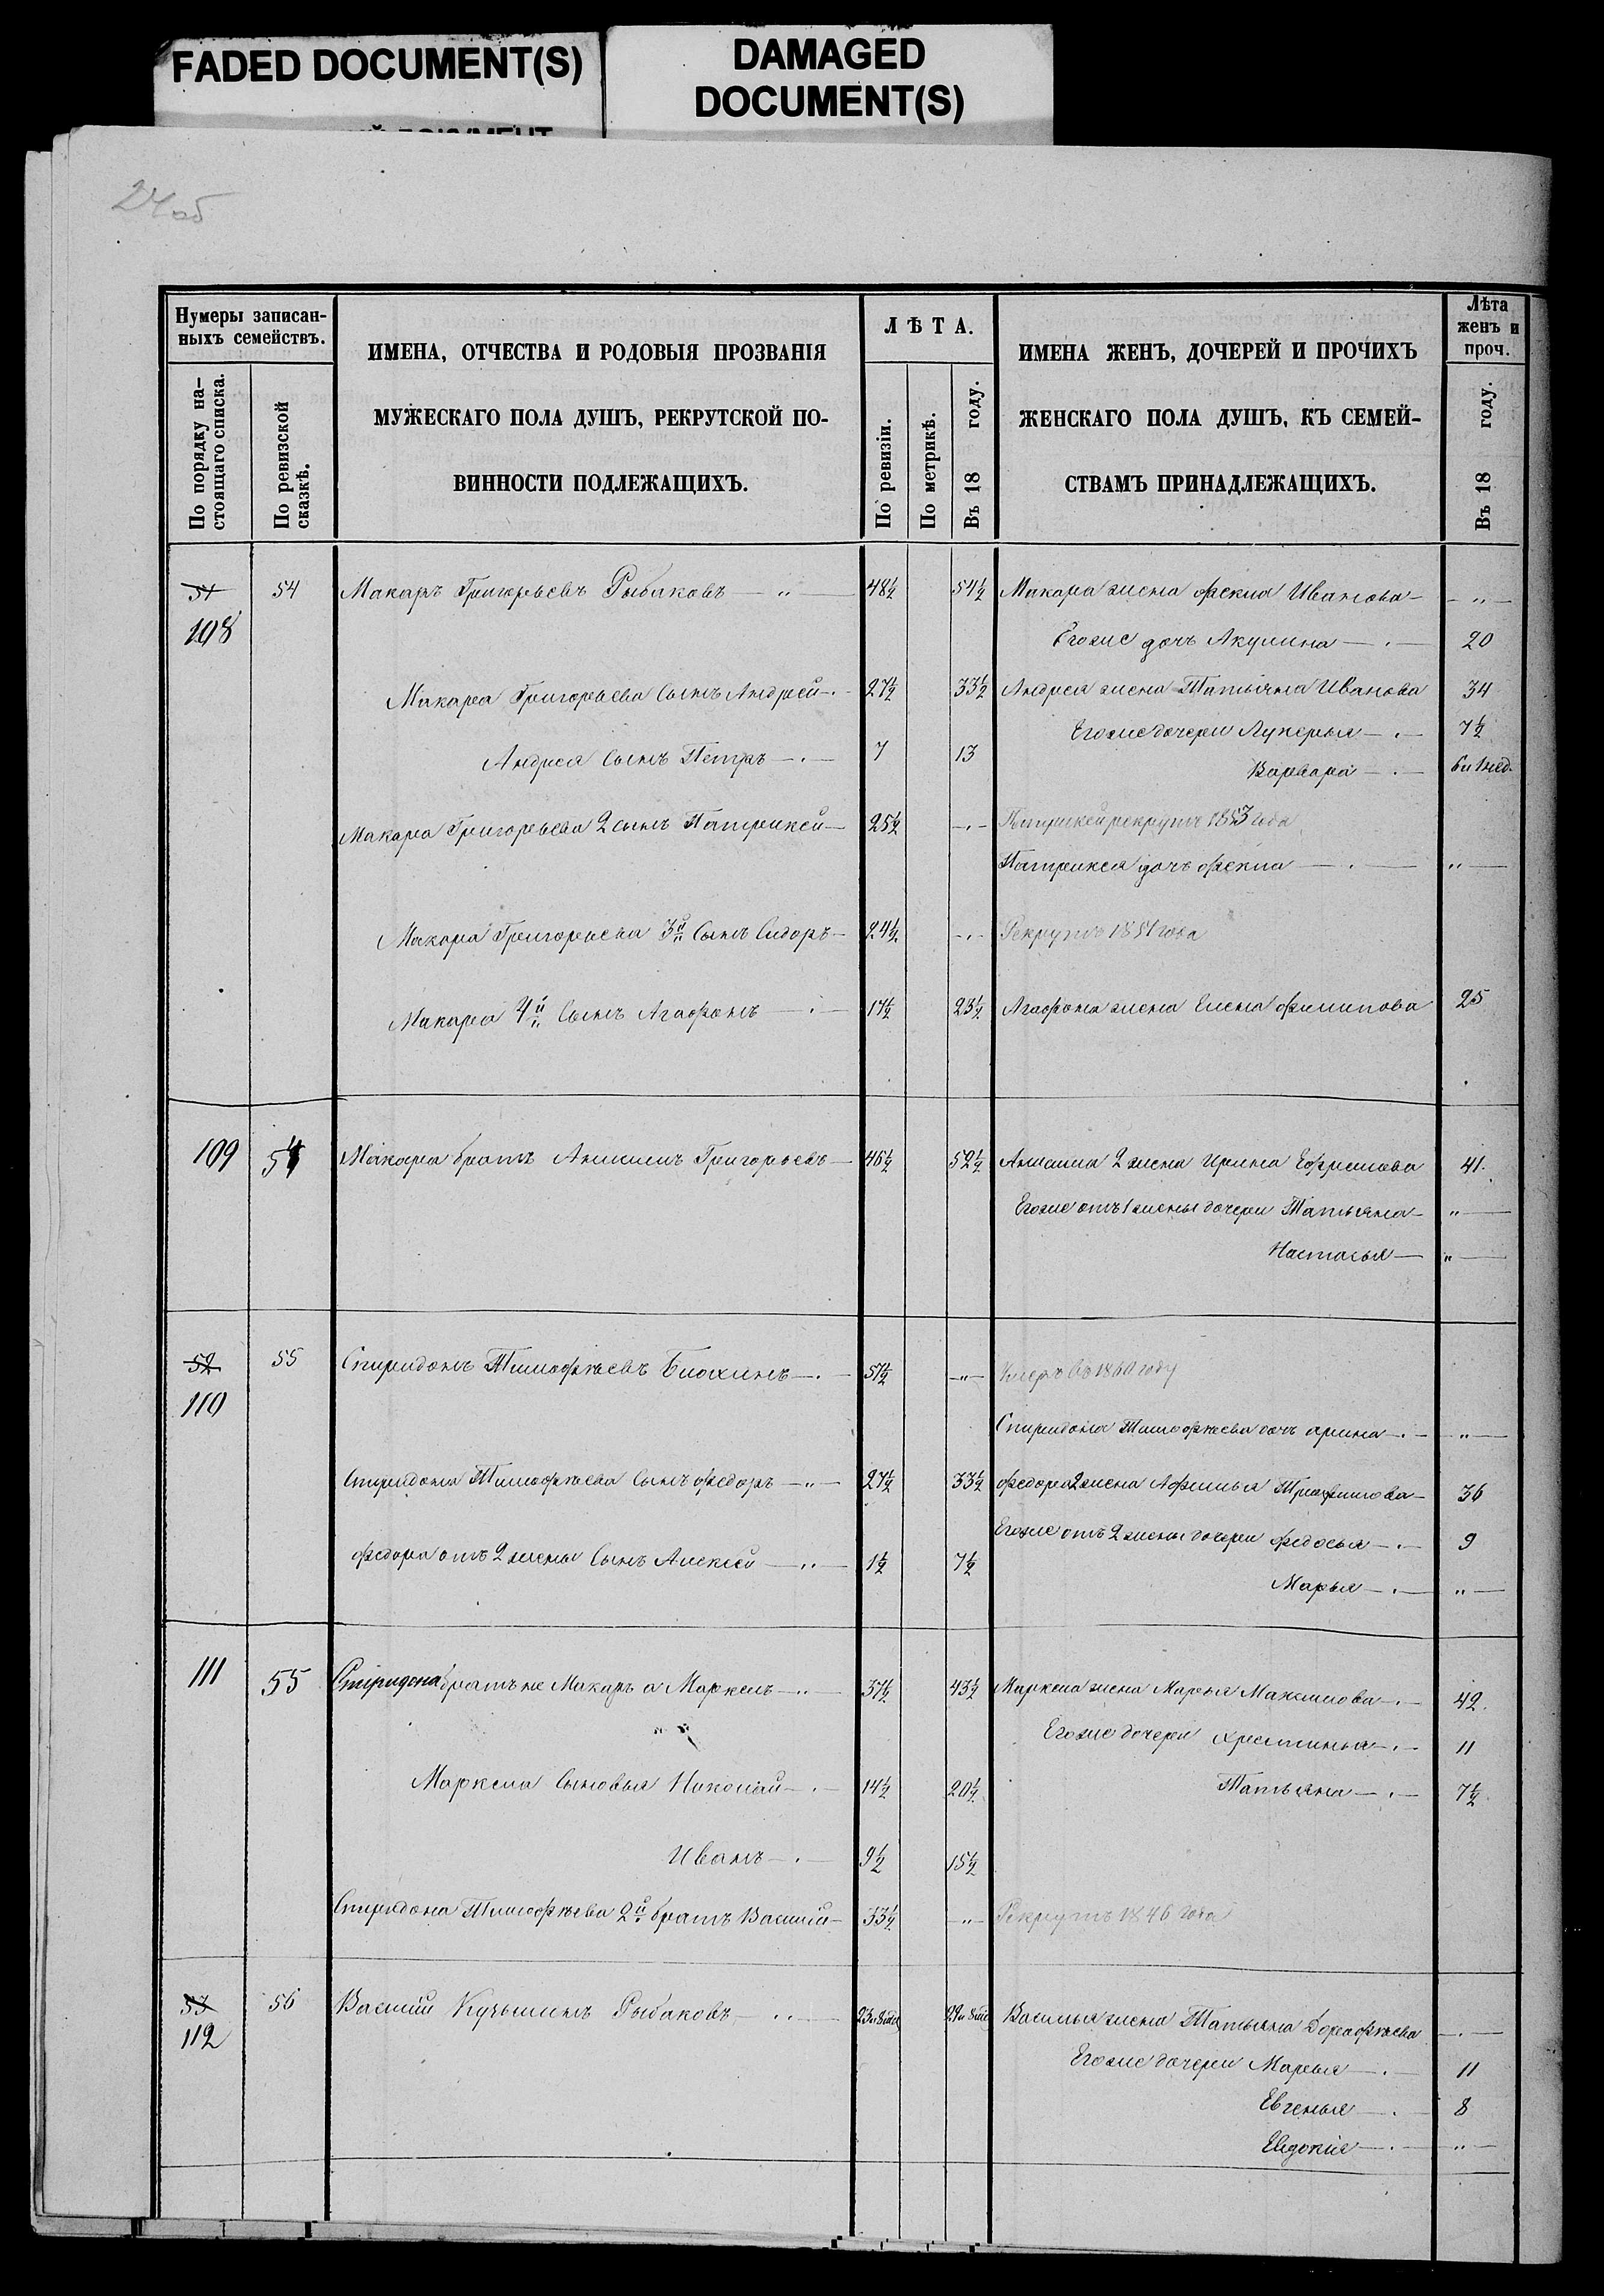 FADED DOCUMENT(S)
DAMAGED
DOCUMENT(S)
24об
Нумеры записан-
ныхъ семействъ.
По порядку на-
стоящаго списка.
По ревизской
сказкѣ.
ИМЕНА, ОТЧЕСТВА И РОДОВЫЯ ПРОЗВАНІЯ
МУЖЕСКАГО ПОЛА ДУШЪ, РЕКРУТСКОЙ ПО-
ВИННОСТИ ПОДЛЕЖАЩИХЪ.
ЛѢТА.
По ревизіи.
По метрикѣ.
Въ 18 году.
ИМЕНА ЖЕНЪ, ДОЧЕРЕЙ И ПРОЧИХЪ
ЖЕНСКАГО ПОЛА ДУШЪ, КЪ СЕМЕЙ-
СТВАМЪ ПРИНАДЛЕЖАЩИХЪ.
Лѣта
женъ и
проч.
Въ 18 году.
51 54 Макаръ Григорьевъ Рыбаковъ — „ — 48½ 54½ Макара жена Фекла Иванова — „ —
108 Егоже дочь Акулина — 20
Макара Григорьева Сынъ Андрей — 27½ 33½ Андрея жена Татьяна Иванова 34
Егоже дочери Лукерья — 7½
Андрея Сынъ Петръ — 7 13
Варвара — 6 и 1 нед.
Макара Григорьева 2 сынъ Патрикей — 25½ — Патрикей рекрутъ 1853 года
Патрикея дочь Фекла — „ —
Макара Григорьева 3й Сынъ Сидоръ — 24½ — Рекрутъ 1851 года
Макара 4й Сынъ Агафонъ — 17½ 23½ Агафона жена Елена Филипова 25
109 54 Макара братъ Анисимъ Григорьевъ — 46½ 52½ Анисима 2 жена Ирина Ефримова 41.
Егоже отъ 1 жены дочери Татьяна — „ —
Настасья — „ —
52 55 Спиридонъ Тимофѣевъ Блохинъ — 51½ — „ — Умеръ въ 1860 году
110
Спиридона Тимофѣева дочь Арина — „ —
Спиридона Тимофѣева Сынъ Федоръ — „ — 27½ 33½ Федора 2 жена Афимья Трафимова — 36
Егоже отъ 2 жены дочери Федосья — 9
Федора отъ 2 жены Сынъ Алексей — „ — 1½ 7½
Марья — „ —
111 55 Спиридона братъ не Макаръ а Маркелъ — „ 37½ 43½ Маркела жена Марья Максимова — 42.
Егоже дочери Христинья — 11
Маркела Сыновья Николай — 14½ 20½ Татьяна — 7½
Иванъ — 9½ 15½
Спиридона Тимофѣева 2й братъ Василій — 33½ — „ — Рекрутъ 1846 года
53 56 Василій Кузьминъ Рыбаковъ — „ — Василья жена Татьяна Дорофѣева — „ —
112
Егоже дочери Марья — 11
Евгенья — 8
Евдокія — „ —